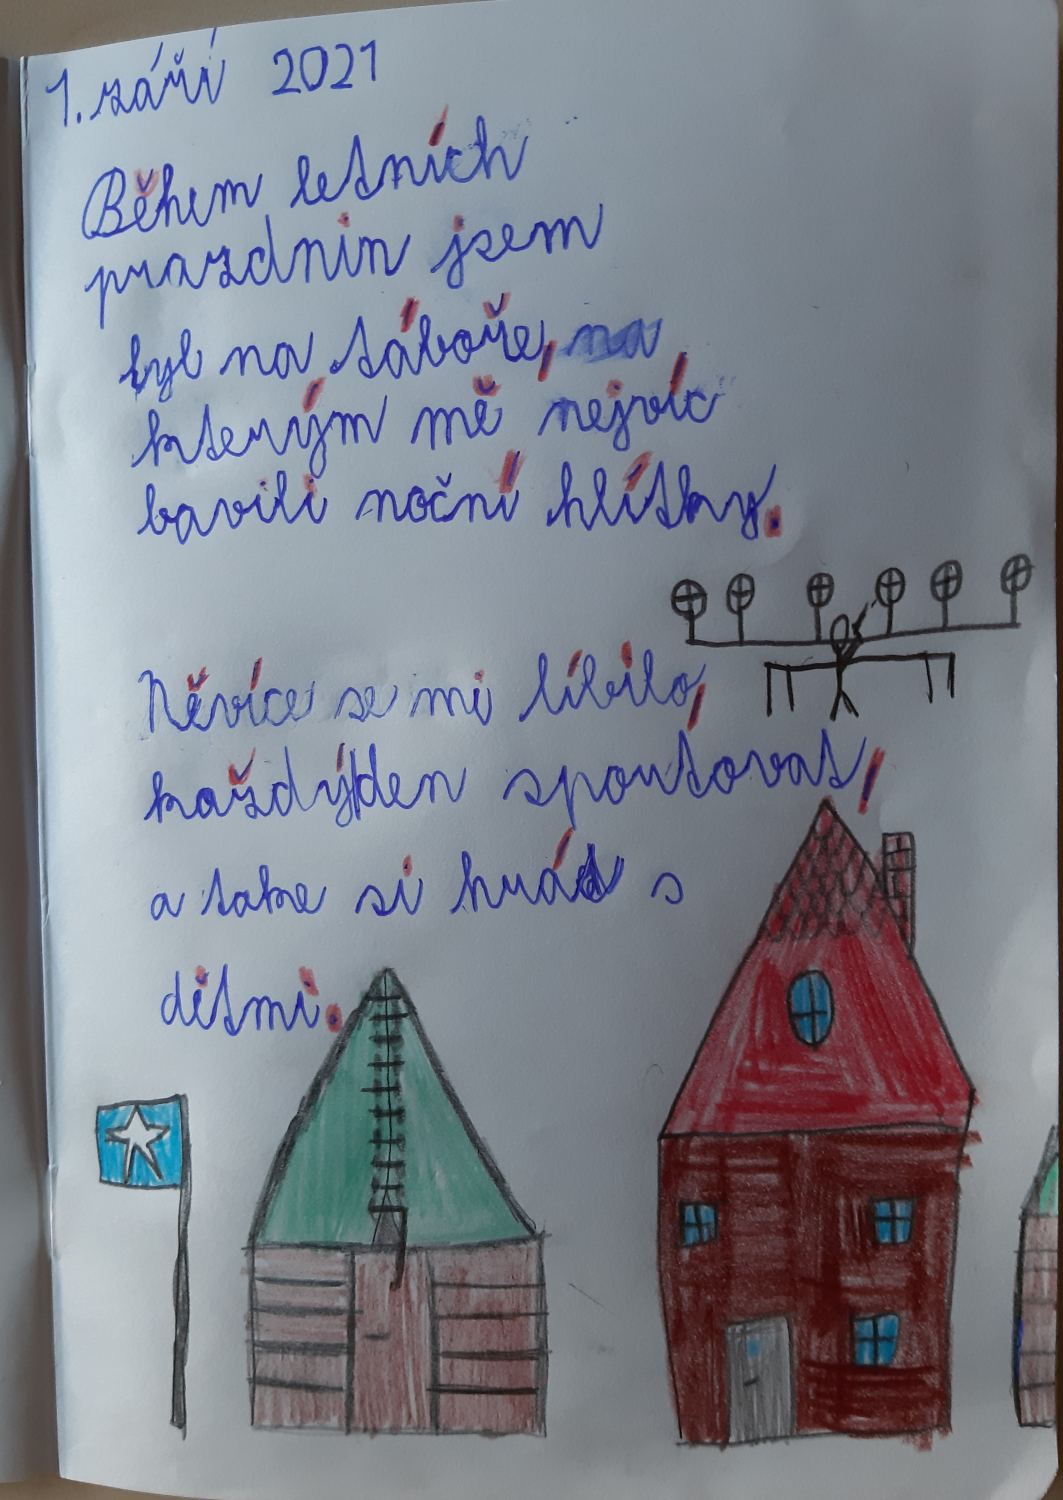 1. září 2021
Během letních
prazdnin jsem
byl na táboře, na
kterým mě nejvíc
bavili noční hlítky.
Něvíce se mi líbilo,
každý|den sportovat,
a take si hrát s
dětmi.